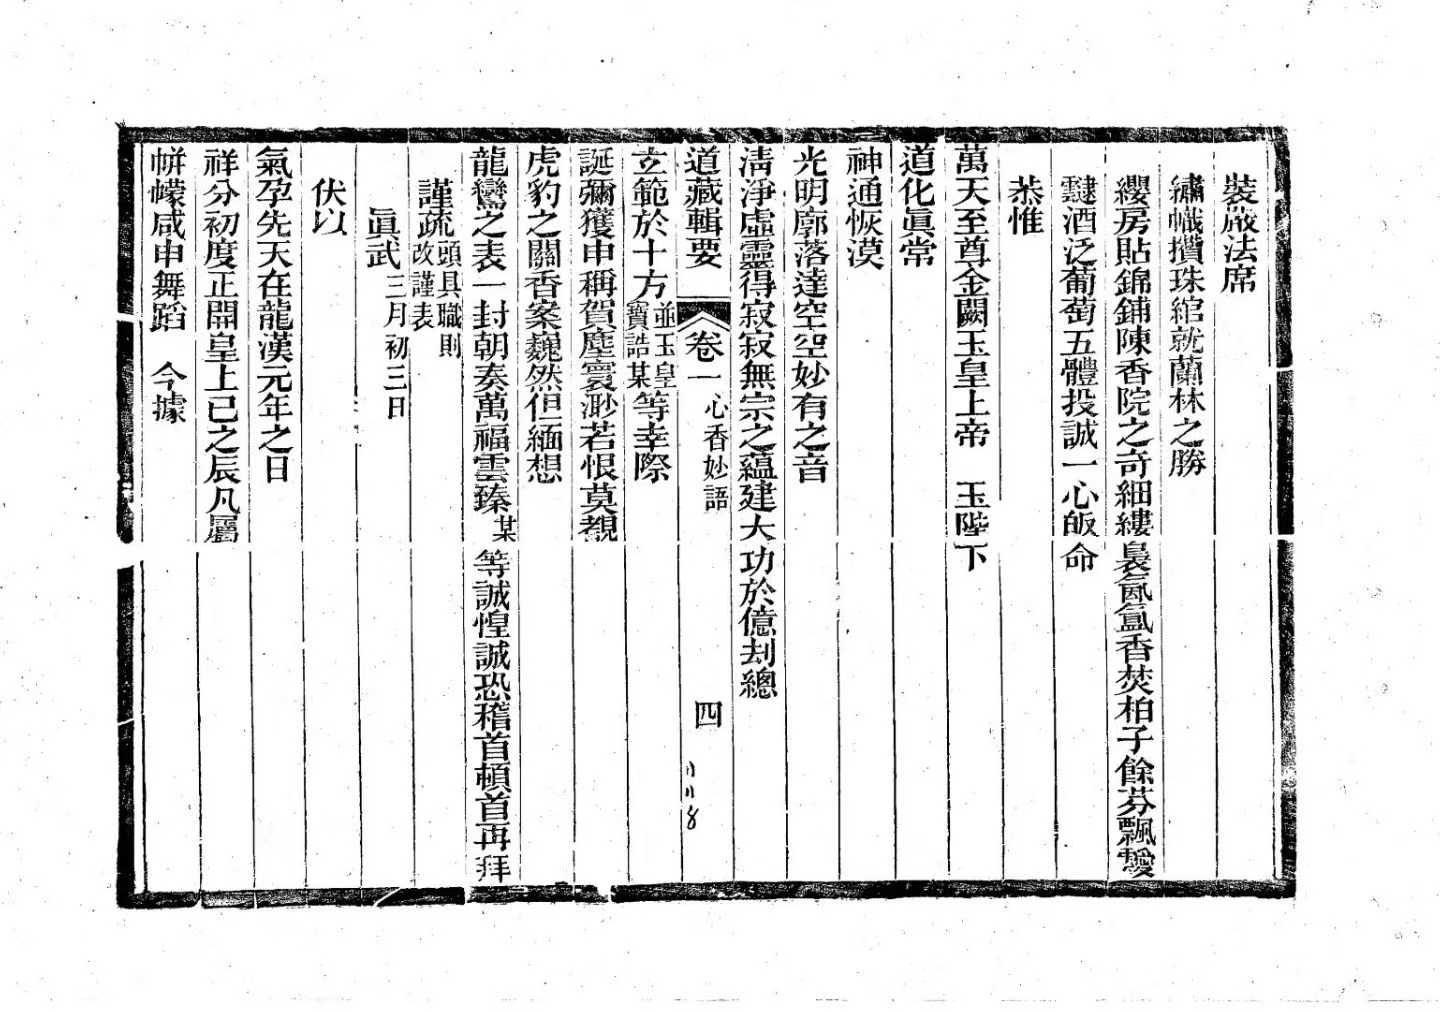 裝嚴法席
繡幟攢珠綰就蘭林之勝
纓房貼錦鋪陳香院之奇細縷裊氤氳香焚柏子餘芬飄靉
靆酒泛葡萄五體投誠一心皈命
恭惟
萬天至尊金闕玉皇上帝　玉陛下
道化眞常
神通恢漠
光明廓落達空空妙有之音
清淨虛靈得寂寂無宗之蘊建大功於億刦總
道藏輯要　卷一　心香妙語　四　11118
立範於十方並玉皇寶誥某等幸際
誕彌獲申稱賀塵寰渺若恨莫覩
虎豹之關香案巍然但緬想
龍鸞之表一封朝奏萬福雲臻某等誠惶誠恐稽首頓首再拜
謹疏頭具職則改謹表
眞武三月初三日
伏以
氣孕先天在龍漢元年之日
祥分初度正開皇上巳之辰凡屬
帡幪咸申舞蹈　今據